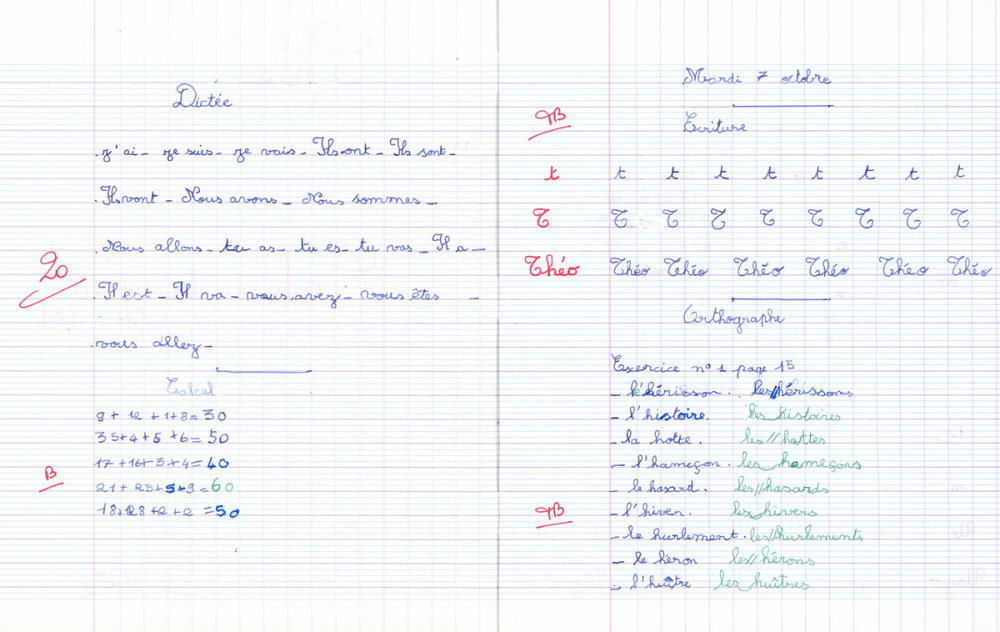 Dictée
.j'ai - je suis - je vais - Ils ont - Ils sont -
.Ils vont - Nous avons - Nous sommes -
.Nous allons - tu as - tu es - tu vas - Il a -
20
.Il est - Il va - vous avez - vous êtes -
.vous allez -
Calcul
9 + 12 + 1 + 8 = 30
35 + 4 + 5 + 6 = 50
17 + 16 + 3 + 4 = 40
B
21 + 2 + 5 + 9 = 60
18 + 28 + 2 + 2 = 50
Mardi 7 octobre
TB
Ecriture
t t t t t t t t t
T T T T T T T T T
Théo Théo Théo Théo Théo Théo Théo
Orthographe
Exercice n° 1 page 15
- l'hérisson . les//hérissons
- l'histoire. les histoires
- la hotte . les//hottes
- l'hameçon . les hameçons
- le hasard . les//hasards
TB
- l'hiver. les hivers
- le hurlement . les//hurlements
- le héron les//hérons
- l'huître les huîtres